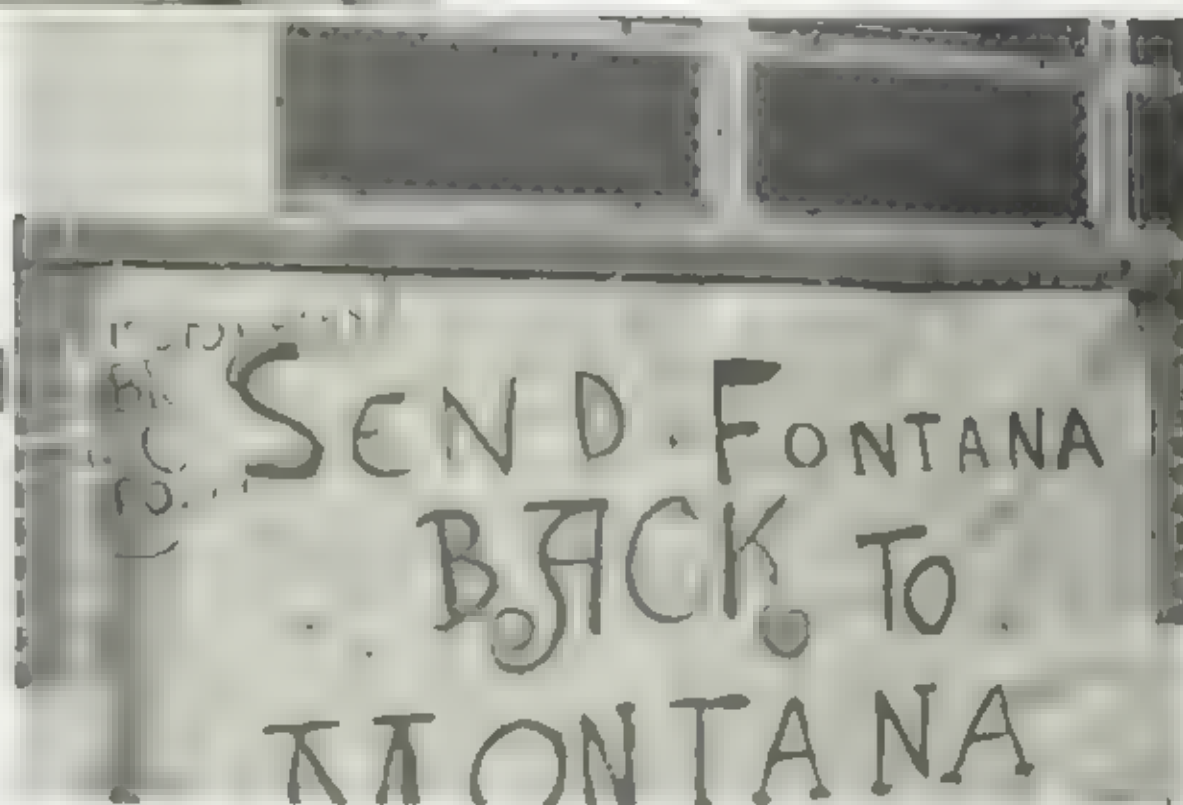 SEND FONTANA
BACK TO
MONTANA